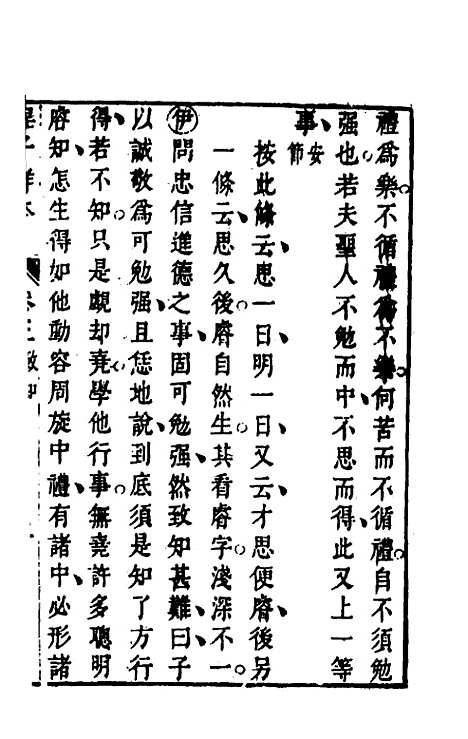 禮爲樂不循禮爲不樂何苦而不循禮自不須勉
强也若夫聖人不勉而中不思而得此又上一等
事安節
按此條云思一日明一日又云才思便睿後另
一條云思久後睿自然生其看睿字淺深不一
伊問忠信進德之事固可勉强然致知甚難曰子
以誠敬爲可勉强且恁地說到底須是知了方行
得若不知只是覷却堯學他行事無堯許多聰明
睿知怎生得如他動容周旋中禮有諸中必形諸
卷三致知